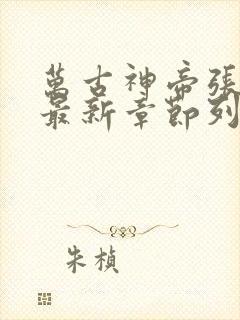 萬古神帝張
最新章節列
朱楨